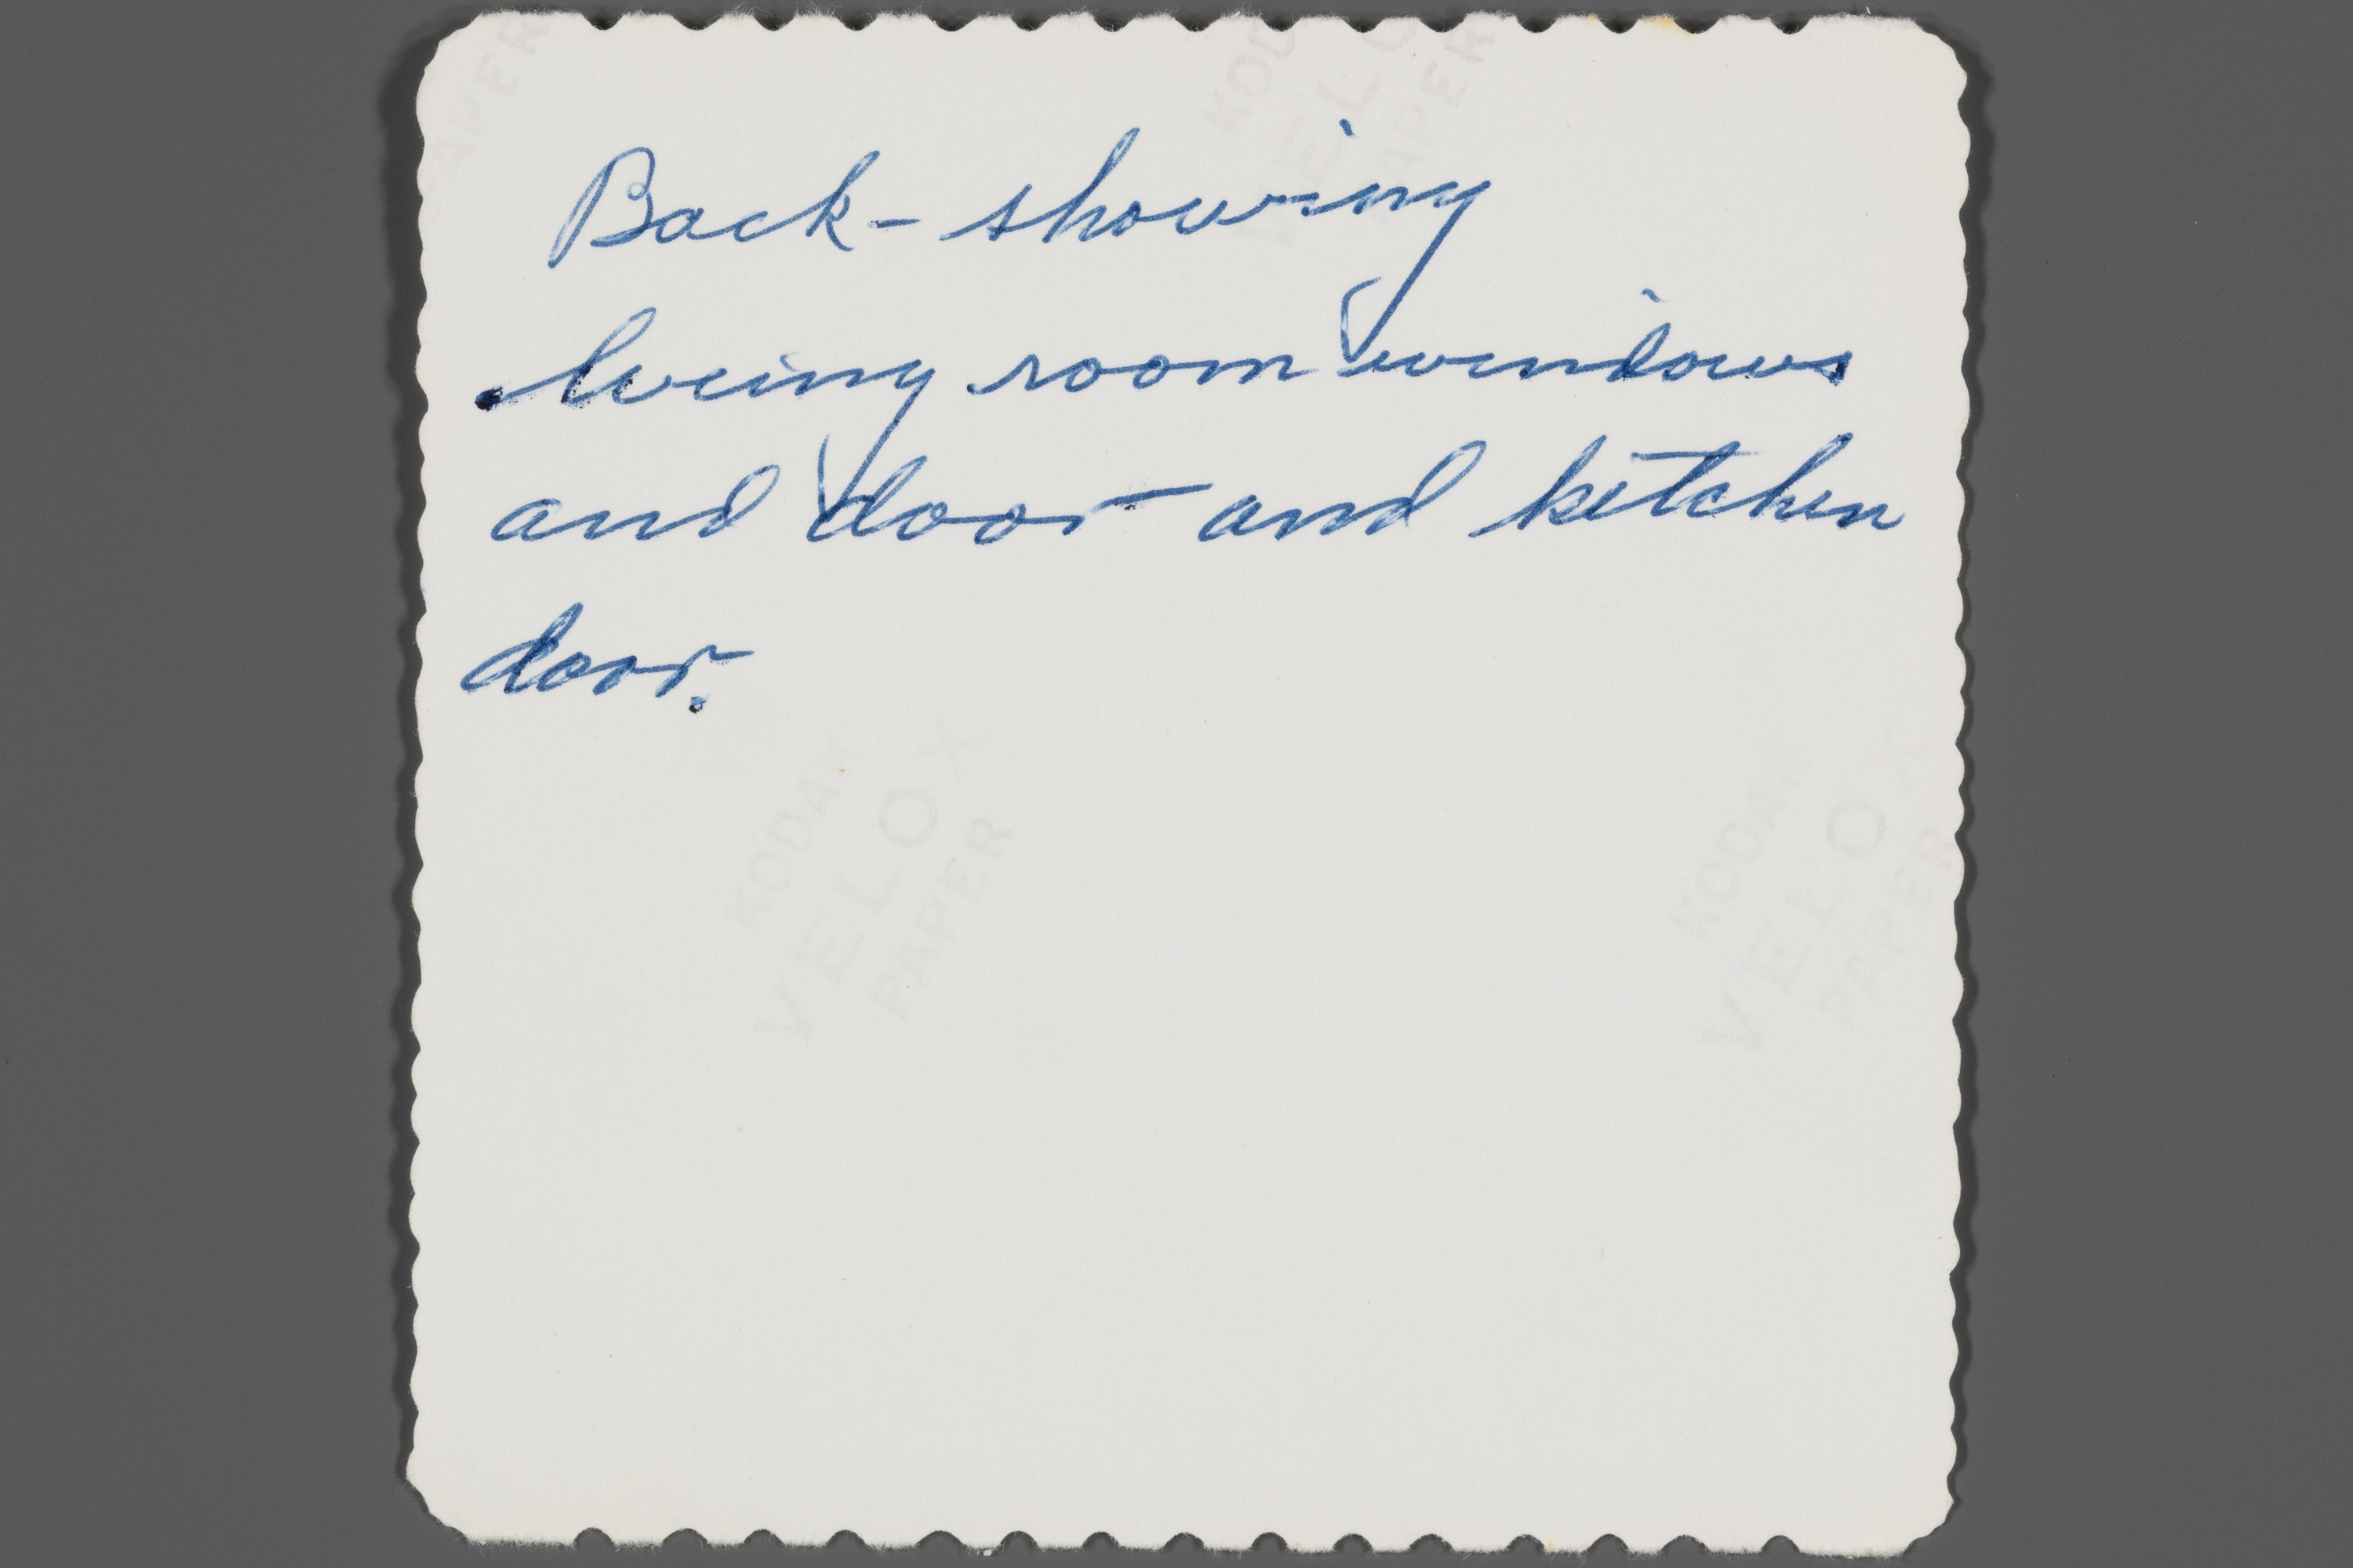 APER
KOD
VELO
APER
Back - showing
living room windows
and door and kitchen
door.
KODAK
VELOX
PAPER
KODAK
VELOX
PAPER